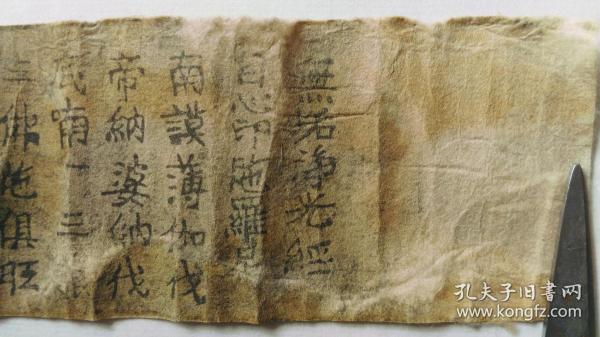 無垢淨光經
自心印陁羅尼
南謨薄伽伐
帝納婆納伐
底喃一三
三佛陁俱胝
孔夫子旧書网
www.kongfz.com